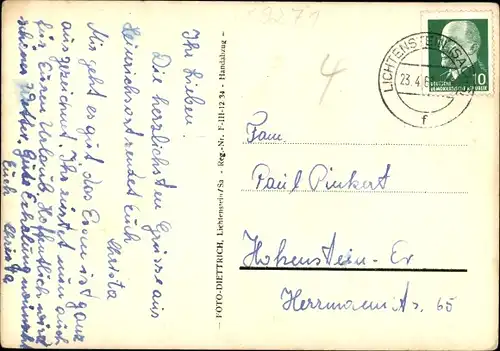 9271
4
Ihr Lieben!
Die herzlichsten Grüsse aus
Heinrichsort sendet Euch
Christa
Mir geht es gut, das Essen ist ganz
ausgezeichnet. Ihr rüstet nun auch
für Euren Urlaub. Hoffentlich wird
schönes Wetter. Gute Erholung wünscht
Euch Christa
FOTO-DIETTRICH, Lichtenstein/Sa - Reg.-Nr. F-III-12 34 - Handabzug -
LICHTENSTEIN (SA
23.4.6
f
10
DEUTSCHE
DEMOKRATISCHE REPUBLIK
Fam.
Paul Pinkert
Hohenstein-Er
Herrmann 65